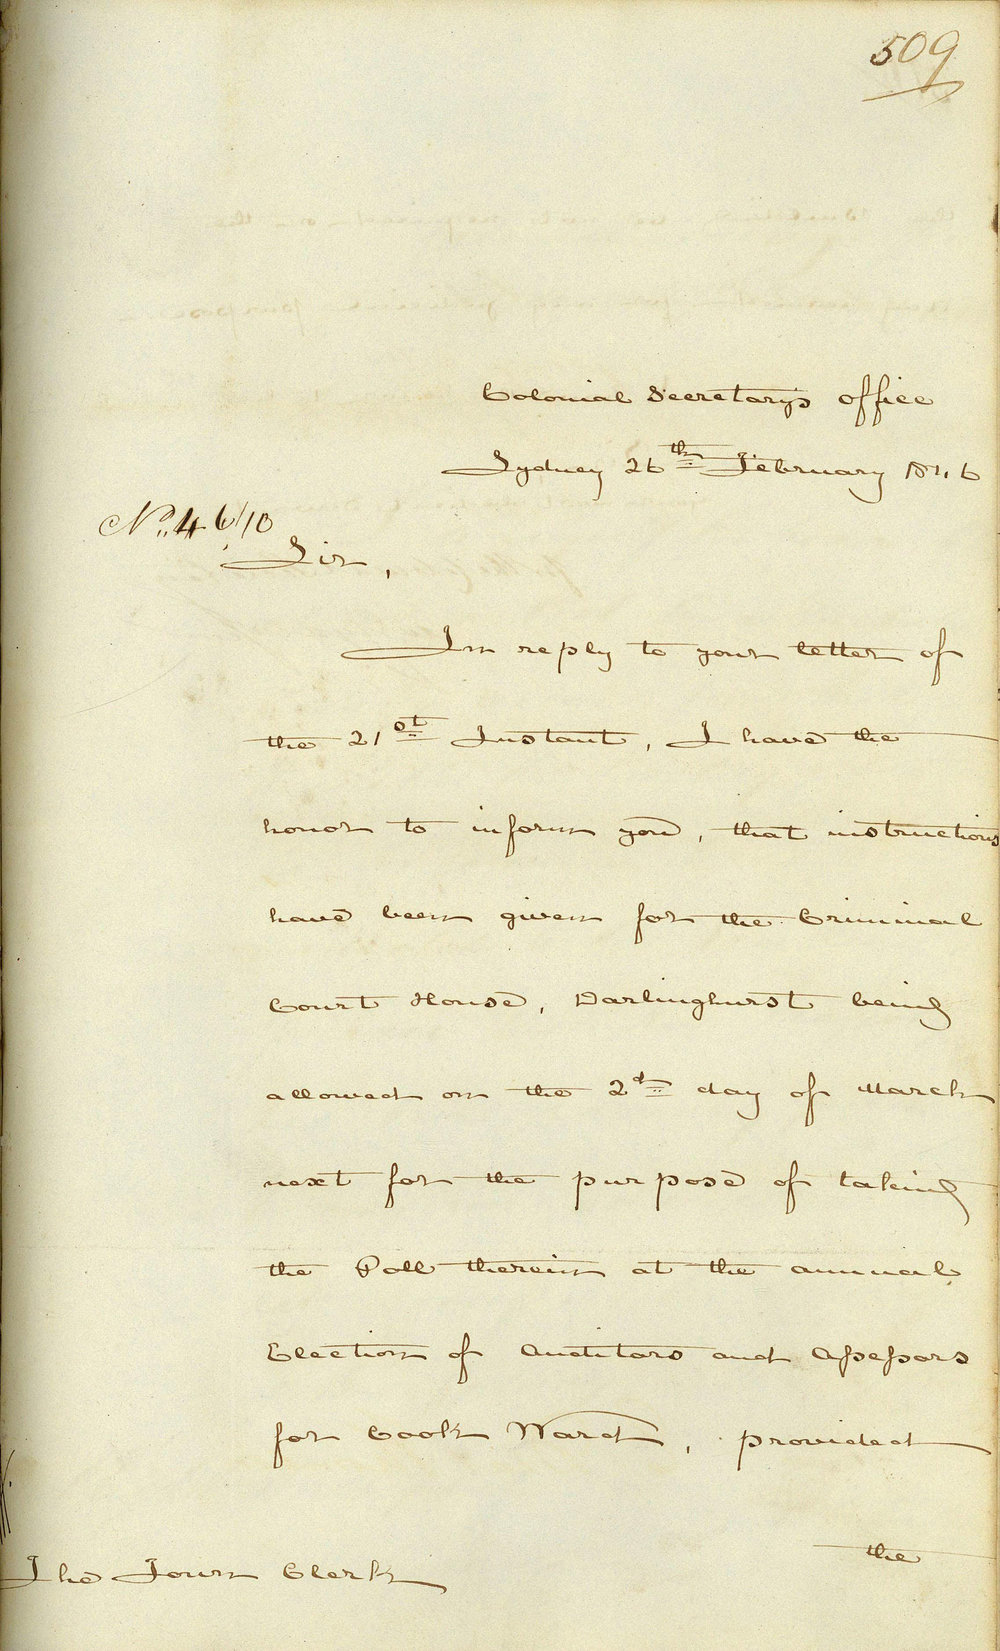 509
Colonial Secretary's Office
Sydney 26th February 1846
No. 46/10
Sir,
In reply to your letter of
the 21st Instant, I have the
honor to inform you, that instructions
have been given for the Criminal
Court House, Darlinghurst being
allowed on the 2d day of March
next for the purpose of taking
the Poll therein at the annual
Election of Auditors and Assessors
for Cook Ward, provided
the
The Town Clerk